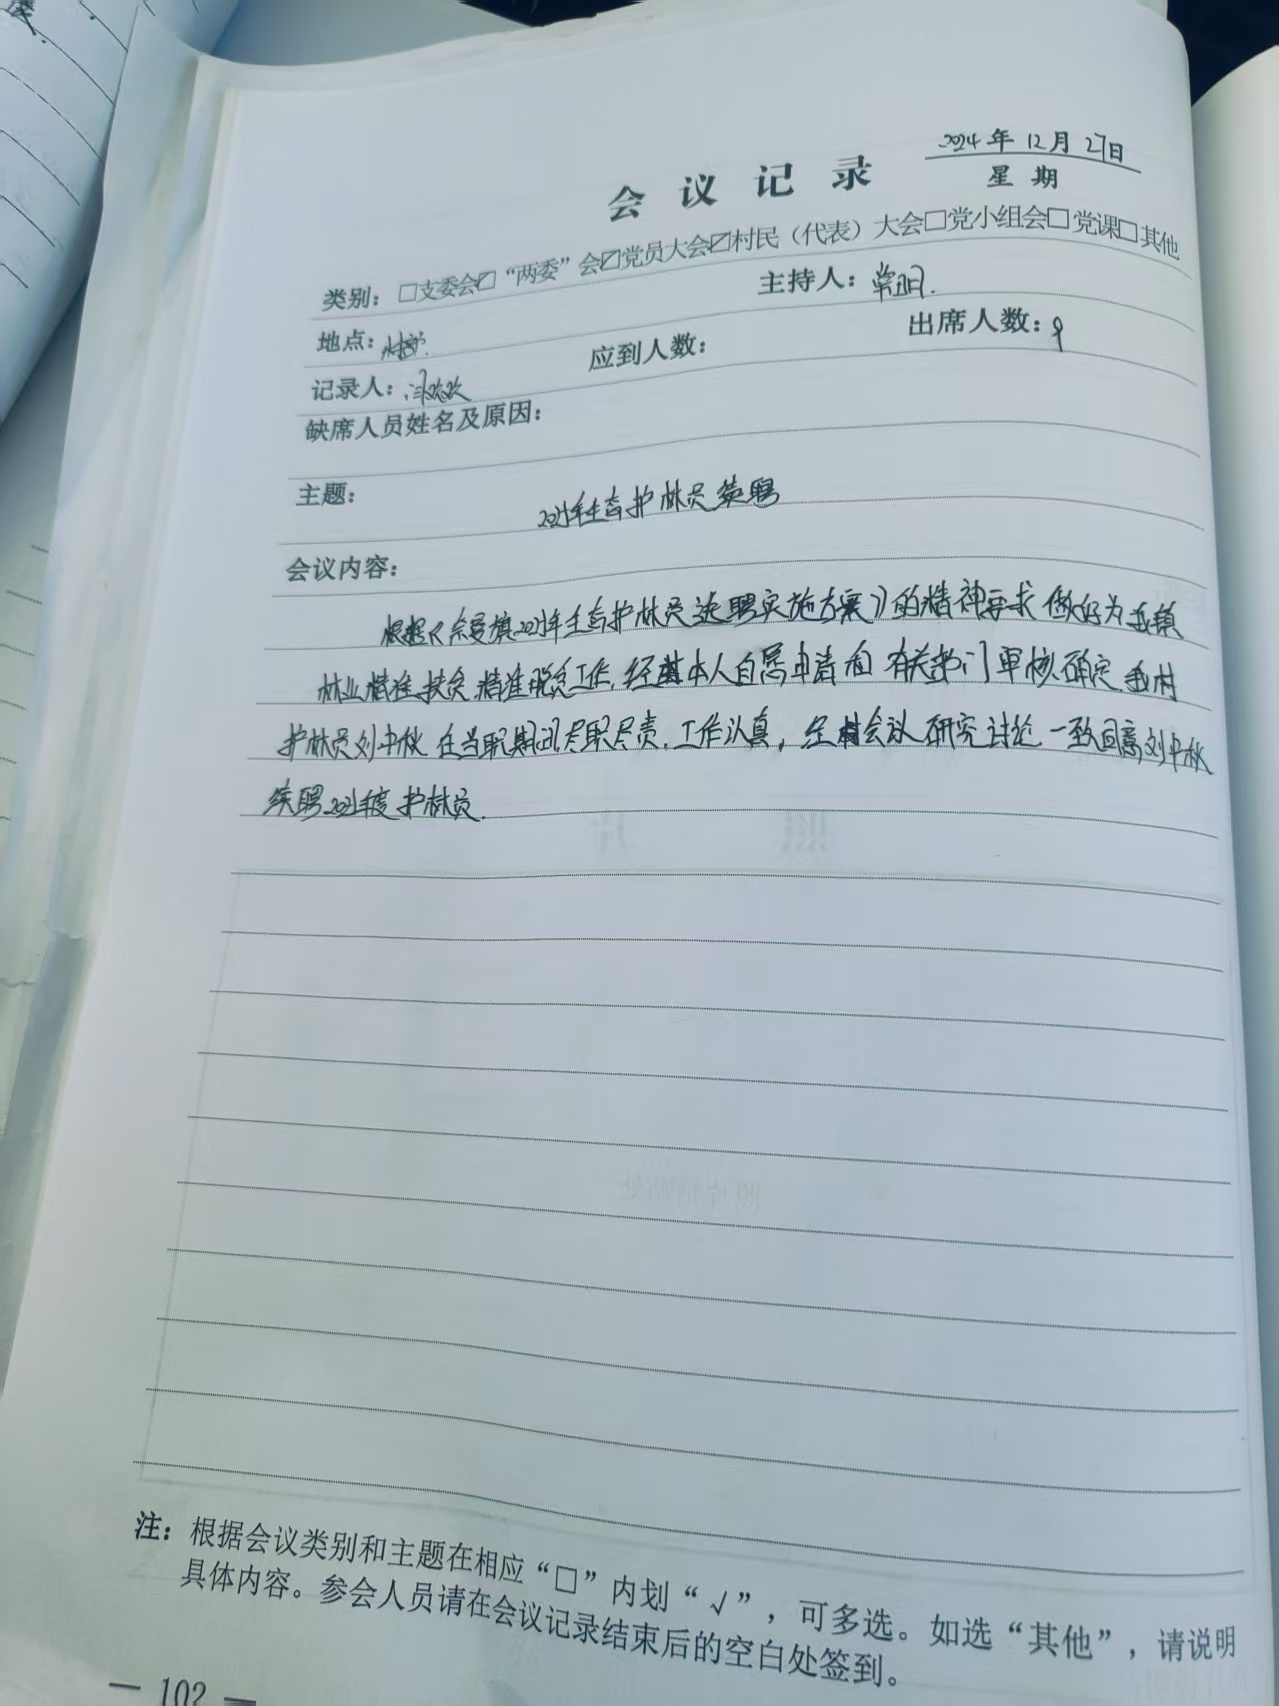 2024年12月27日
会议记录
星期
类别：□支委会☑“两委”会☑党员大会☑村民（代表）大会□党小组会□党课□其他
地点：村部. 主持人：
记录人： 应到人数： 出席人数：9
缺席人员姓名及原因：
主题：
生态护林员续聘
会议内容：
根据《奈曼旗2025年生态护林员选聘实施方案》的精神要求 做好为我镇
林业精准扶贫.精准脱贫工作.经其本人自愿申请和有关部门审核.确定.我村
护林员刘中秋在当职期间尽职尽责.工作认真，经村会议研究讨论一致同意刘中秋
续聘2025年度护林员.
注：根据会议类别和主题在相应“□”内划“√”，可多选。如选“其他”，请说明
具体内容。参会人员请在会议记录结束后的空白处签到。
— 102 —